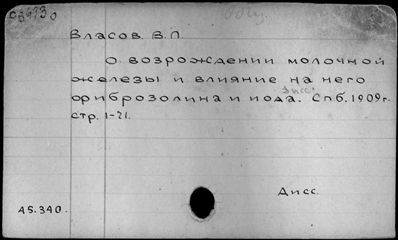 Власов. В. П.
О возрождении молочной
железы и влияние на него
фиброзолина и иода. Спб. 1909 г.
Дисс.
стр. 1-71.
Дисс.
А5.340.